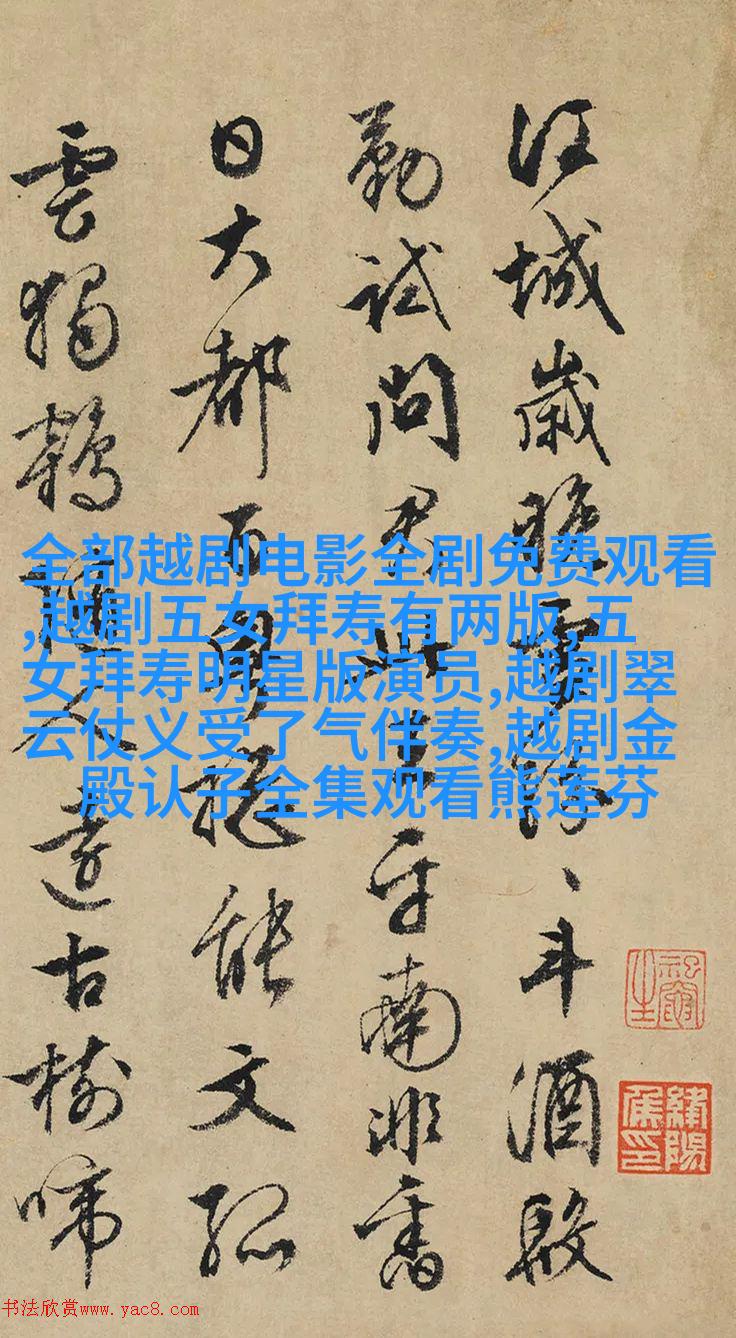 江城歲晚雪紛、斗酒殷
勤試問君此平南非舊
日大都能文孤
雲獨鶴隨人遠古樹啼
全部越剧电影全剧免费观看
,越剧五女拜寿有两版,五
女拜寿明星版演员,越剧翠
云仗义受了气伴奏,越剧金
殿认子全集观看熊莲芬
书法欣赏www.yac8.com